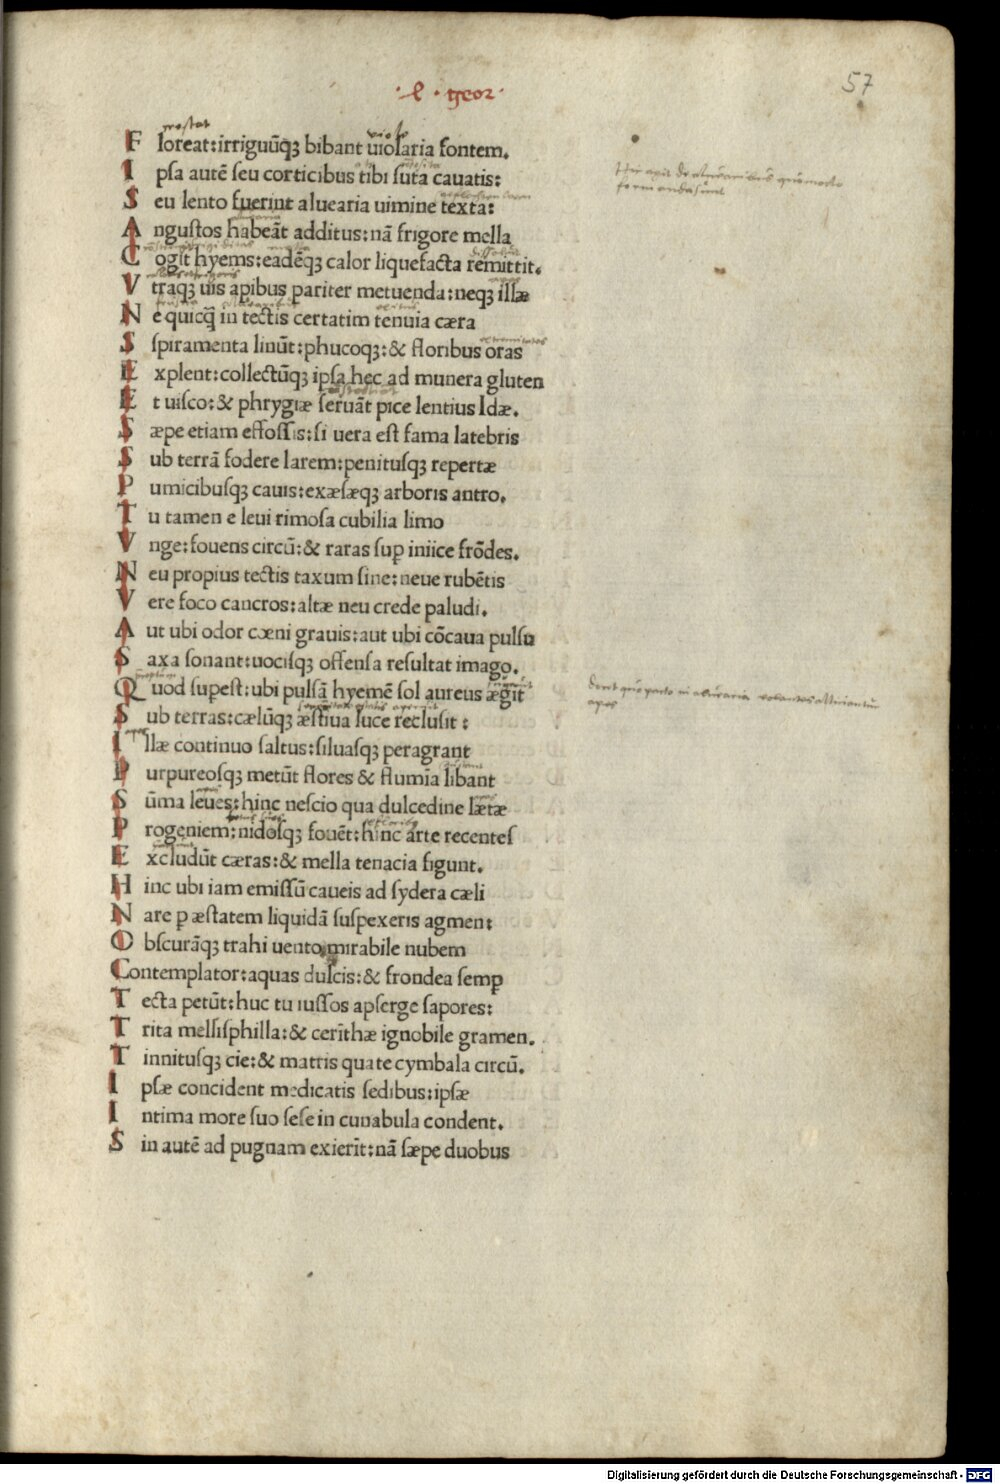 · l · geor ·
57
F loreat: irriguũqȝ bibant uiolaria fontem.
I psa autẽ seu corticibus tibi suta cauatis:
S eu lento fuerint aluearia uimine texta:
A ngustos habeãt additus: nã frigore mella
C ogit hyems: eadẽqȝ calor liquefacta remittit.
V traqȝ uis apibus pariter metuenda: neqȝ illæ
N e quicq̃ in tectis certatim tenuia cæra
S piramenta linũt: phucoqȝ: & floribus oras
E xplent: collectũqȝ ipsa hec ad munera gluten
E t uisco: & phrygiæ seruãt pice lentius Idæ.
S æpe etiam effossis: si uera est fama latebris
S ub terrã fodere larem: penitusqȝ repertæ
P umicibusqȝ cauis: exæsæqȝ arboris antro.
T u tamen e leui rimosa cubilia limo
V nge: fouens circũ: & raras suꝑ iniice frõdes.
N eu propius tectis taxum sine: neue rubẽtis
V ere foco cancros: altæ neu crede paludi.
A ut ubi odor cœni grauis: aut ubi cõcaua pulsu
S axa sonant: uocisqȝ offensa resultat imago.
Q uod supest: ubi pulsã hyemẽ sol aureus ægit
S ub terras: cælũqȝ æstiua luce reclusit:
I llæ continuo saltus: siluasqȝ peragrant
P urpureosqȝ metũt flores & flumĩa libant
S ũma leues: hinc nescio qua dulcedine lætæ
P rogeniem: nidosqȝ fouẽt: hinc arte recentes
E xcludũt cæras: & mella tenacia figunt.
H inc ubi iam emissũ caueis ad sydera cæli
N are ꝑ æstatem liquidã suspexeris agment
O bscurãqȝ trahi uento mirabile nubem
Contemplator: aquas dulcis: & frondea semꝑ
T ecta petũt: huc tu iussos apserge sapores:
T rita mellisphilla: & cerĩthæ ignobile gramen.
T innitusqȝ cie: & matris quate cymbala circũ.
I psæ concident medicatis sedibus: ipsæ
I ntima more suo sese in cunabula condent.
S in autẽ ad pugnam exierĩt: nã sæpe duobus
Digitalisierung gefördert durch die Deutsche Forschungsgemeinschaft - DFG